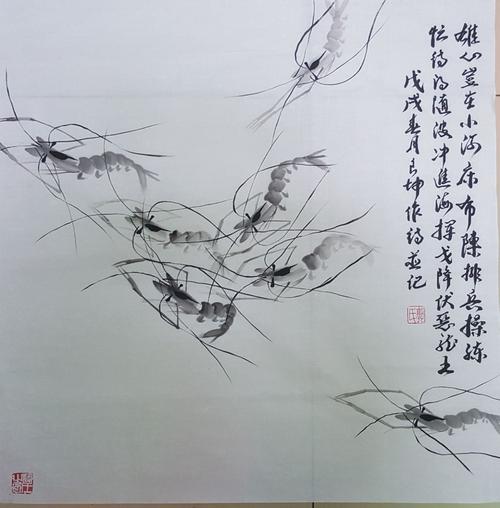 雄心豈在小河床布陳排兵操练
忙待得随波冲進海揮戈降伏惡龍王
戊戌春月坤作詩並记